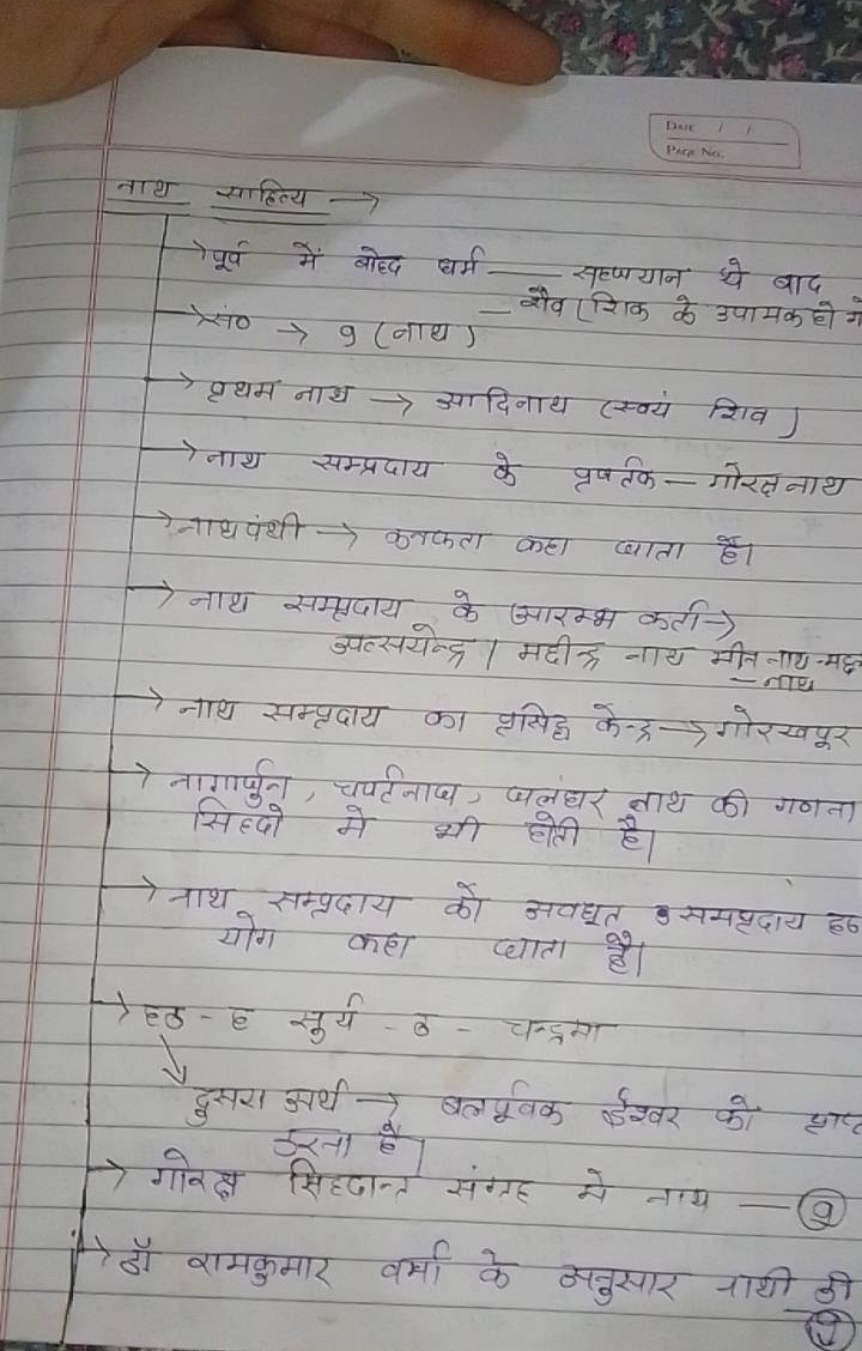 DATE / /
PAGE No.
नाथ साहित्य →
→ पूर्व में बोद्द धर्म — सहजयान थे बाद
→ सं० → 9 (नाथ) – शैव (शिक के उपामक हो
→ प्रथम नाथ → आदिनाथ (स्वयं शिव)
→ नाथ सम्प्रदाय के प्रर्वतक – गोरक्षनाथ
→ नाथपंथी → कनफता कहा जाता है।
→ नाथ सम्प्रदाय के आरम्भ कर्ता →
मत्सयेन्द्र / मछीन्द्र नाथ मीन नाथ -
– नाथ
→ नाथ सम्प्रदाय का प्रसिद्ध केन्द्र → गोरखपूर
→ नागार्जुन, चर्पटनाथ, जलंधर नाथ की गणना
सिद्दो मे भी होती है।
→ नाथ सम्प्रदाय को अवधूत सम्प्रदाय हठ
योग कहा जाता है।
→ हठ - ह सुर्य - ठ - चन्द्रमा
दुसरा अर्थ → बलपूर्वक ईश्वर को
करना है।
→ गोरक्ष सिद्दान्त संग्रह मे नाथ — 9
→ डॉ रामकुमार वर्मा के अनुसार नाथों की
9